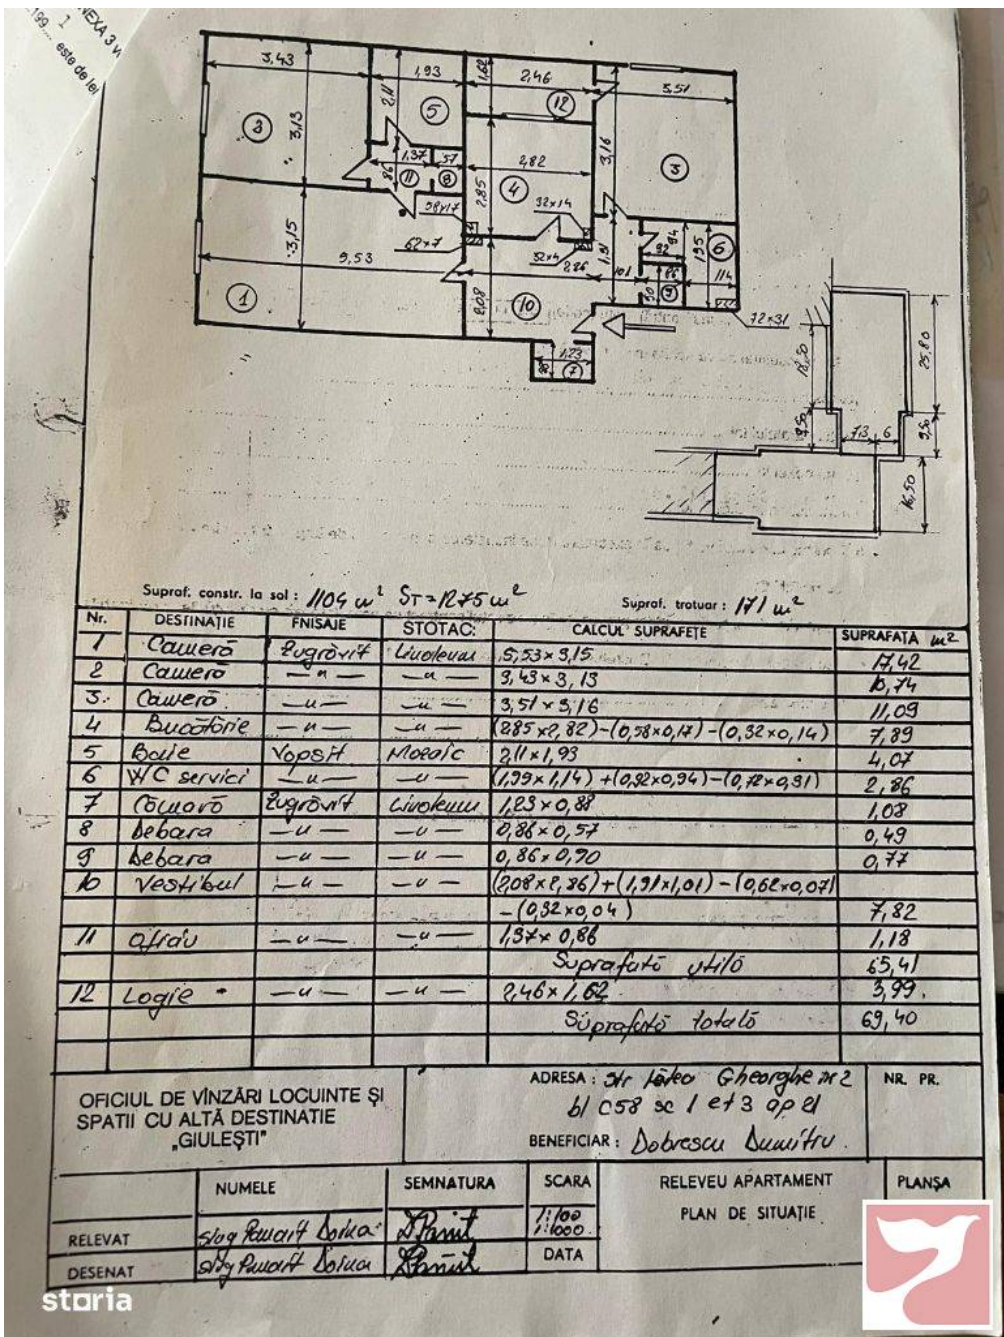 NEXA 3
199.... este de lei
3,43
1,93
1,62
2,46
3,51
2,11
5
12
2
3,13
3,16
3
1,37
57
86
11
8
2,82
4
2,85
58x17
32x14
62x7
3,15
5,53
1
52x4
2,26
1,91
101
92
94
195
6
86
90
9
114
2,08
10
72x31
1,23
88
7
25,80
9,50
7,3
6
16,50
Supraf. constr. la sol : 1104 m² ST=1275 m²
Supraf. trotuar : 171 m²
Nr. DESTINAȚIE FNISAJE STOTAC: CALCUL SUPRAFEȚE SUPRAFAȚA m²
1 Cameră Zugrăvit Linoleum 5,53x3,15 17,42
2 Cameră —„— —„— 3,43x3,13 10,74
3. Cameră —„— —„— 3,51x3,16 11,09
4 Bucătărie —„— —„— (2,85x2,82)-(0,58x0,17)-(0,32x0,14) 7,89
5 Baie Vopsit Mozaic 2,11x1,93 4,07
6 WC servici —„— —„— (1,99x1,14)+(0,92x0,94)-(0,72x0,31) 2,86
7 Cămară Zugrăvit Linoleum 1,23x0,88 1,08
8 Debara —„— —„— 0,86x0,57 0,49
9 Debara —„— —„— 0,86x0,90 0,77
10 Vestibul —„— —„— (2,08x2,86)+(1,91x1,01)-(0,62x0,07)
-(0,32x0,04) 7,82
11 Oficiu —„— —„— 1,37x0,86 1,18
Suprafată utilă 65,41
12 Logie —„— —„— 2,46x1,62 3,99
Suprafată totală 69,40
OFICIUL DE VÎNZĂRI LOCUINTE ȘI
SPATII CU ALTĂ DESTINATIE
„GIULEȘTI"
ADRESA : Str Gheorghe nr 2
bl C58 sc 1 et 3 ap 21
BENEFICIAR : Dobrescu Dumitru
NR. PR.
NUMELE SEMNATURA SCARA RELEVEU APARTAMENT PLANȘA
RELEVAT Doina 1:100
1:1000 PLAN DE SITUAȚIE
DESENAT Doina DATA
storia